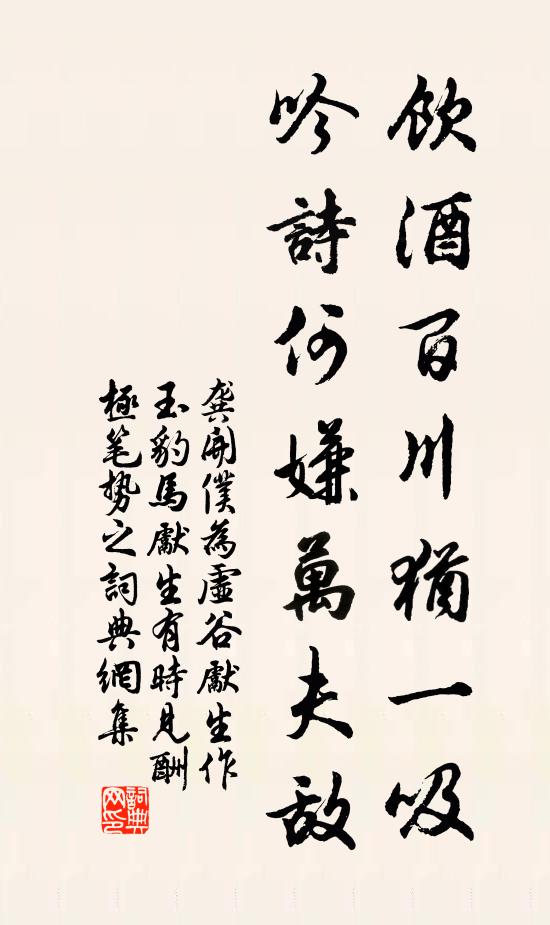 飲酒百川猶一吸
吟詩何嫌萬夫敵
龔開僕為虛谷獻生作
玉豹馬獻生有時見酬
極笔势之詞典網集
詞典网印